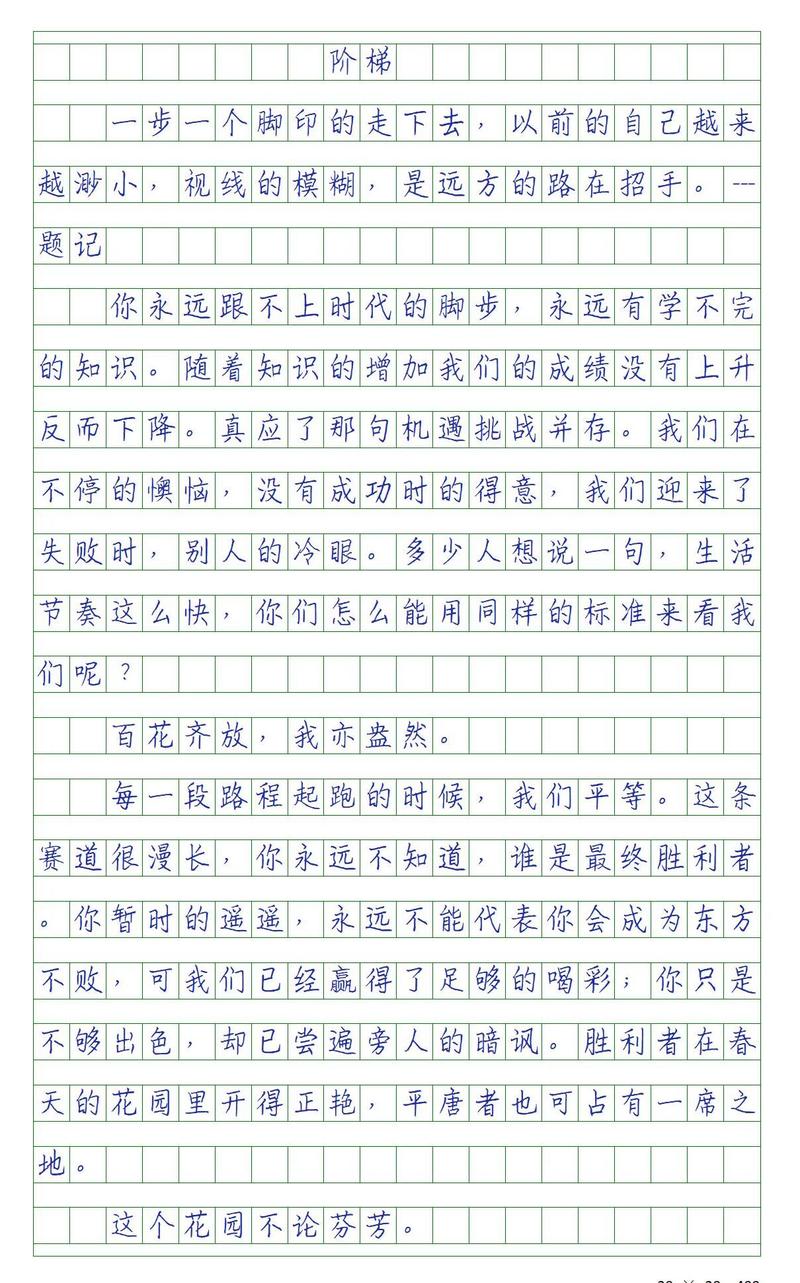 阶梯
一步一个脚印的走下去，以前的自己越来
越渺小，视线的模糊，是远方的路在招手。---
题记
你永远跟不上时代的脚步，永远有学不完
的知识。随着知识的增加我们的成绩没有上升
反而下降。真应了那句机遇挑战并存。我们在
不停的懊恼，没有成功时的得意，我们迎来了
失败时，别人的冷眼。多少人想说一句，生活
节奏这么快，你们怎么能用同样的标准来看我
们呢？
百花齐放，我亦盎然。
每一段路程起跑的时候，我们平等。这条
赛道很漫长，你永远不知道，谁是最终胜利者
。你暂时的遥遥，永远不能代表你会成为东方
不败，可我们已经赢得了足够的喝彩；你只是
不够出色，却已尝遍旁人的暗讽。胜利者在春
天的花园里开得正艳，平唐者也可占有一席之
地。
这个花园不论芬芳。